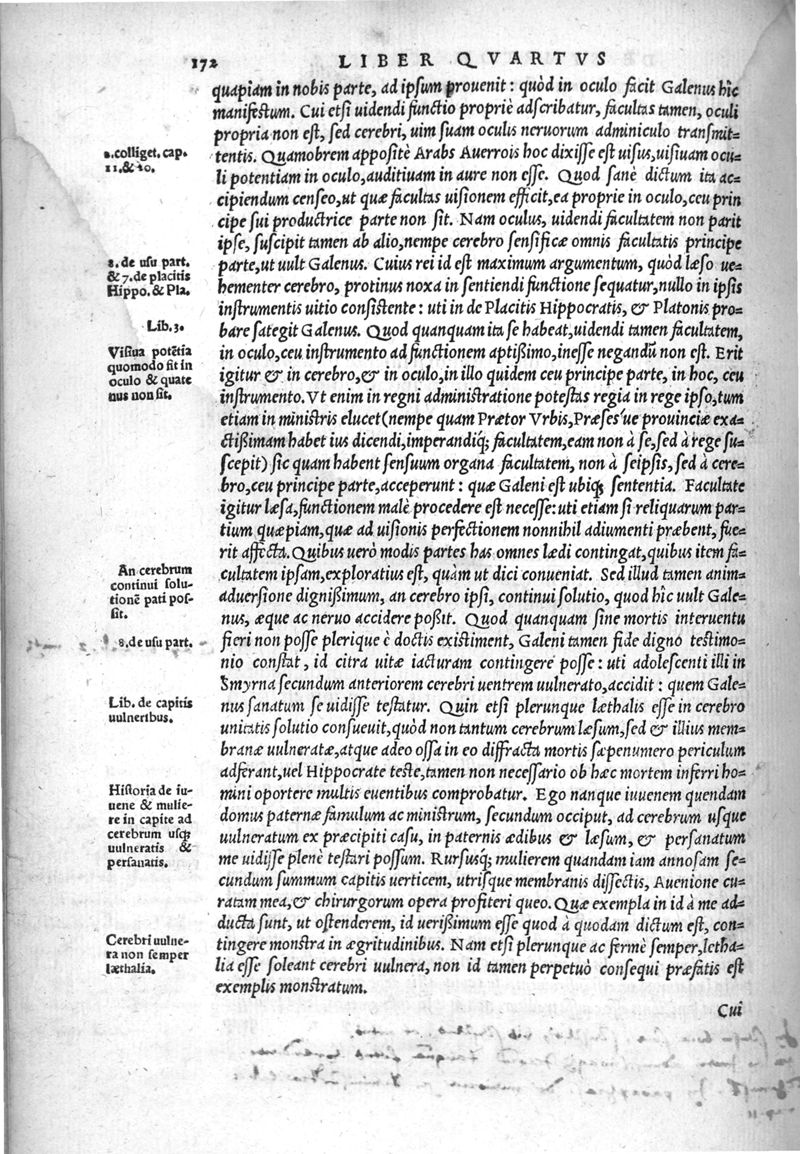 172 LIBER QVARTVS
quapiam in nobis parte, ad ipsum prouenit: quòd in oculo facit Galenus hîc
manifestum. Cui etsi uidendi functio propriè adscribatur, facultas tamen, oculi
propria non est, sed cerebri, uim suam oculis neruorum adminiculo transmit-
2.colliget. cap.
11.& 20.
tentis. Quamobrem appositè Arabs Auerrois hoc dixisse est uisus, uisiuam ocu-
li potentiam in oculo, auditiuam in aure non esse. Quod sanè dictum ita ac-
cipiendum censeo, ut quæ facultas uisionem efficit, ea proprie in oculo, ceu prin
cipe sui productrice parte non sit. Nam oculus, uidendi facultatem non parit
8. de usu part.
& 7. de placitis
Hippo. & Pla.
ipse, suscipit tamen ab alio, nempe cerebro sensificæ omnis facultatis principe
parte, ut uult Galenus. Cuius rei id est maximum argumentum, quòd læso ue-
hementer cerebro, protinus noxa in sentiendi functione sequatur, nullo in ipsis
instrumentis uitio consistente: uti in de Placitis Hippocratis, & Platonis pro-
Lib. 3.
bare sategit Galenus. Quod quanquam ita se habeat, uidendi tamen facultatem,
Visiua potētia
quomodo sit in
oculo & quate
nus non sit.
in oculo, ceu instrumento ad functionem aptißimo, inesse negandū non est. Erit
igitur & in cerebro, & in oculo, in illo quidem ceu principe parte, in hoc, ceu
instrumento. Vt enim in regni administratione potestas regia in rege ipso, tum
etiam in ministris elucet (nempe quam Prætor Vrbis, Præses'ue prouinciæ exa-
ctißimam habet ius dicendi, imperandiq́; facultatem, eam non à se, sed à rege su-
scepit) sic quam habent sensuum organa facultatem, non à seipsis, sed à cere-
bro, ceu principe parte, acceperunt: quæ Galeni est ubiq; sententia. Facultate
igitur læsa, functionem malè procedere est necesse: uti etiam si reliquarum par-
tium quæpiam, quæ ad uisionis perfectionem nonnihil adiumenti præbent, fue-
rit affecta. Quibus uerò modis partes has omnes lædi contingat, quibus item fa-
An cerebrum
continui solu-
tionē pati pos-
sit.
cultatem ipsam, exploratius est, quàm ut dici conueniat. Sed illud tamen anim-
aduersione dignißimum, an cerebro ipsi, continui solutio, quod hîc uult Gale-
nus, æque ac neruo accidere poßit. Quod quanquam sine mortis interuentu
8. de usu part.
fieri non posse plerique è doctis existiment, Galeni tamen fide digno testimo-
nio constat, id citra uitæ iacturam contingere posse: uti adolescenti illi in
Smyrna secundum anteriorem cerebri uentrem uulnerato, accidit: quem Gale-
Lib. de capitis
uulneribus.
nus sanatum se uidisse testatur. Quin etsi plerunque læthalis esse in cerebro
unitatis solutio consueuit, quòd non tantum cerebrum læsum, sed & illius mem-
branæ uulneratæ, atque adeo ossa in eo diffracta mortis sæpenumero periculum
adferant, uel Hippocrate teste, tamen non necessario ob hæc mortem inferri ho-
Historia de iu-
uene & mulie-
re in capite ad
cerebrum usq;
uulneratis &
persanatis.
mini oportere multis euentibus comprobatur. Ego nanque iuuenem quendam
domus paternæ famulum ac ministrum, secundum occiput, ad cerebrum usque
uulneratum ex præcipiti casu, in paternis ædibus & læsum, & persanatum
me uidisse plenè testari possum. Rursusq; mulierem quandam iam annosam se-
cundum summum capitis uerticem, utrisque membranis dissectis, Auenione cu-
ratam mea, & chirurgorum opera profiteri queo. Quæ exempla in id à me ad-
ducta sunt, ut ostenderem, id uerißimum esse quod à quodam dictum est, con-
Cerebri uulne-
ra non semper
læthalia.
tingere monstra in ægritudinibus. Nam etsi plerunque ac fermè semper, letha-
lia esse soleant cerebri uulnera, non id tamen perpetuò consequi præfatis est
exemplis monstratum.
Cui